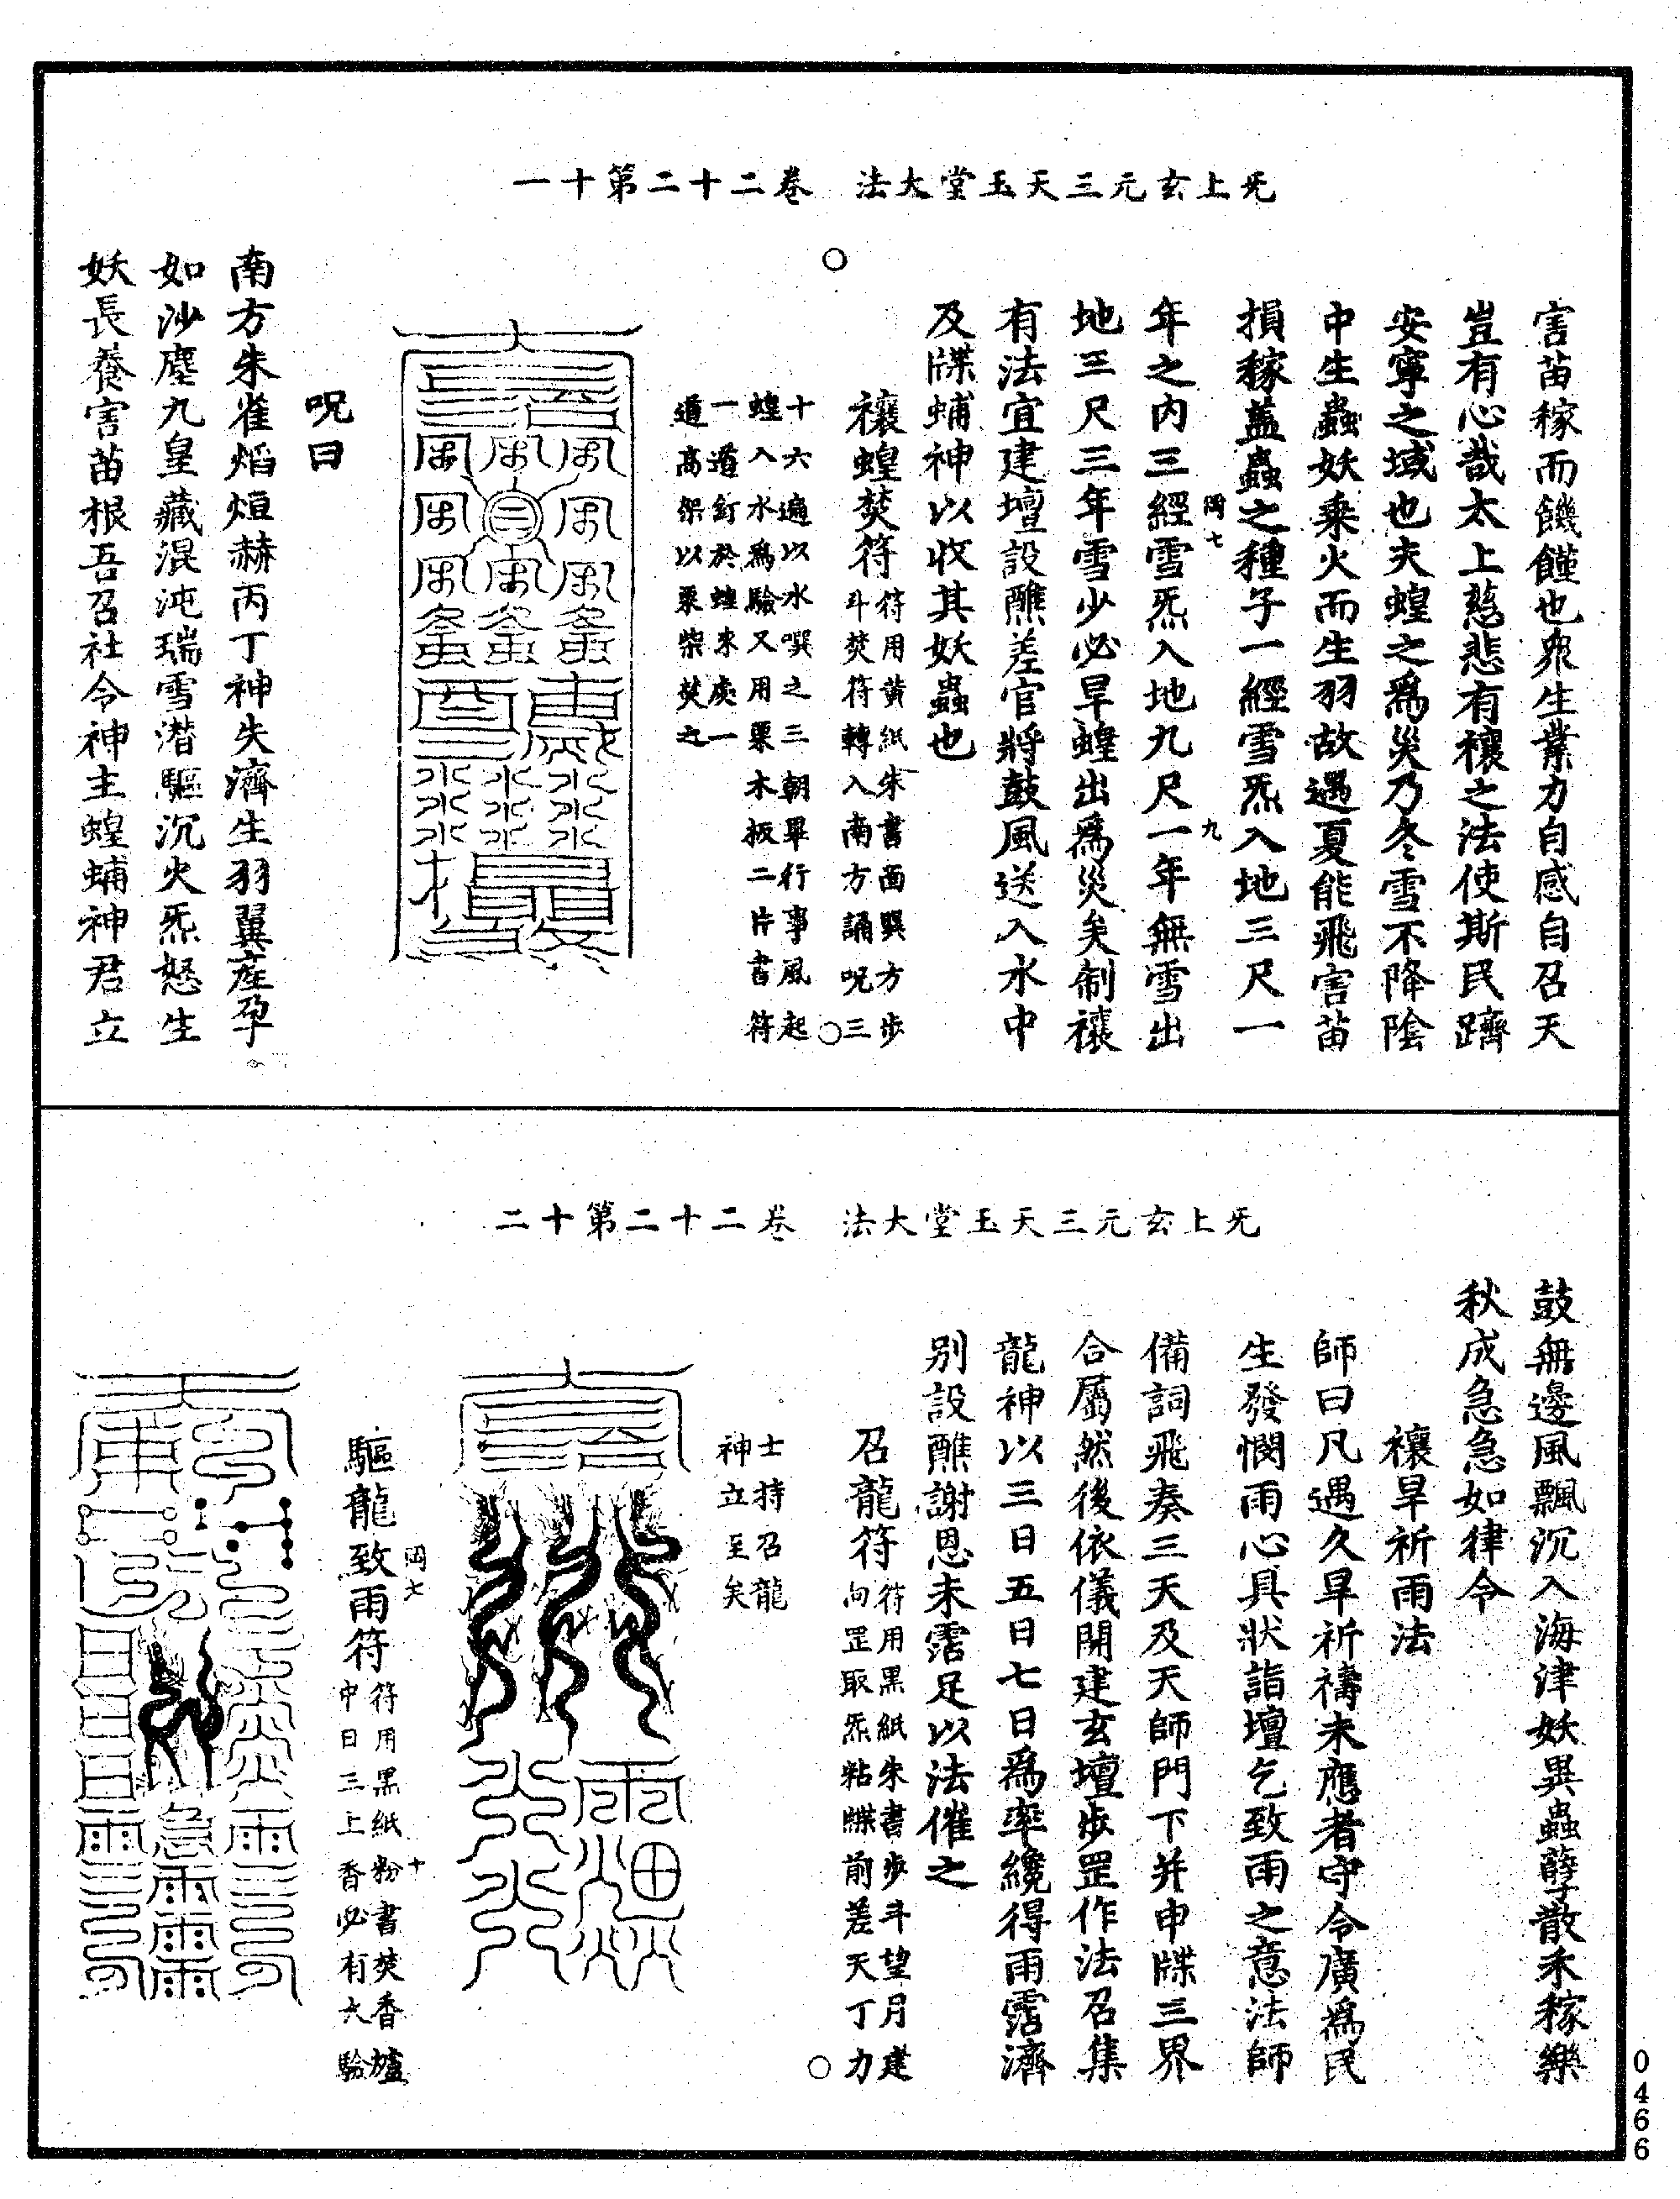 旡上玄元三天玉堂大法　卷二十二第十一
害苗稼而饑饉也衆生業力自感自召天
豈有心哉太上慈悲有禳之法使斯民躋
安寧之域也夫蝗之爲災乃冬雪不降陰
中生蟲妖乘火而生羽故遇夏能飛害苗
損稼蓋蟲之種子一經雪炁入地三尺一
岡七　九
年之内三經雪炁入地九尺一年無雪出
地三尺三年雪少必旱蝗出爲災矣制禳
有法宜建壇設醮差官將鼓風送入水中
及牒蜅神以收其妖蟲也
禳蝗焚符符用黃紙朱書面巽方步
斗焚符轉入南方誦呪三
十六遍以水噀之三朝畢行事風起
蝗入水爲驗又用栗木板二片書符
一道釘於蝗來處一
道高架以栗柴焚之
呪曰
南方朱雀熖烜赫丙丁神失濟生羽翼産孕
如沙塵九皇藏混沌瑞雪潛驅沉火炁怒生
妖長養害苗根吾召社令神主蝗蜅神君立
旡上玄元三天玉堂大法　卷二十二第十二
鼓無邊風飄沉入海津妖異蟲孽散禾稼樂
秋成急急如律令
禳旱祈雨法
師曰凡遇久旱祈禱未應者守令廣爲民
生發憫雨心具狀詣壇乞致雨之意法師
備詞飛奏三天及天師門下并申牒三界
合屬然後依儀開建玄壇步罡作法召集
龍神以三日五日七日爲率纔得雨霑濟
別設醮謝恩未霑足以法催之
召龍符符用黑紙朱書步斗望月建
向罡取炁粘牒前差天丁力
士持召龍
神立至矣
岡七　十
驅龍致雨符符用黑紙粉書焚香爐
中日三上香必有大驗
0466